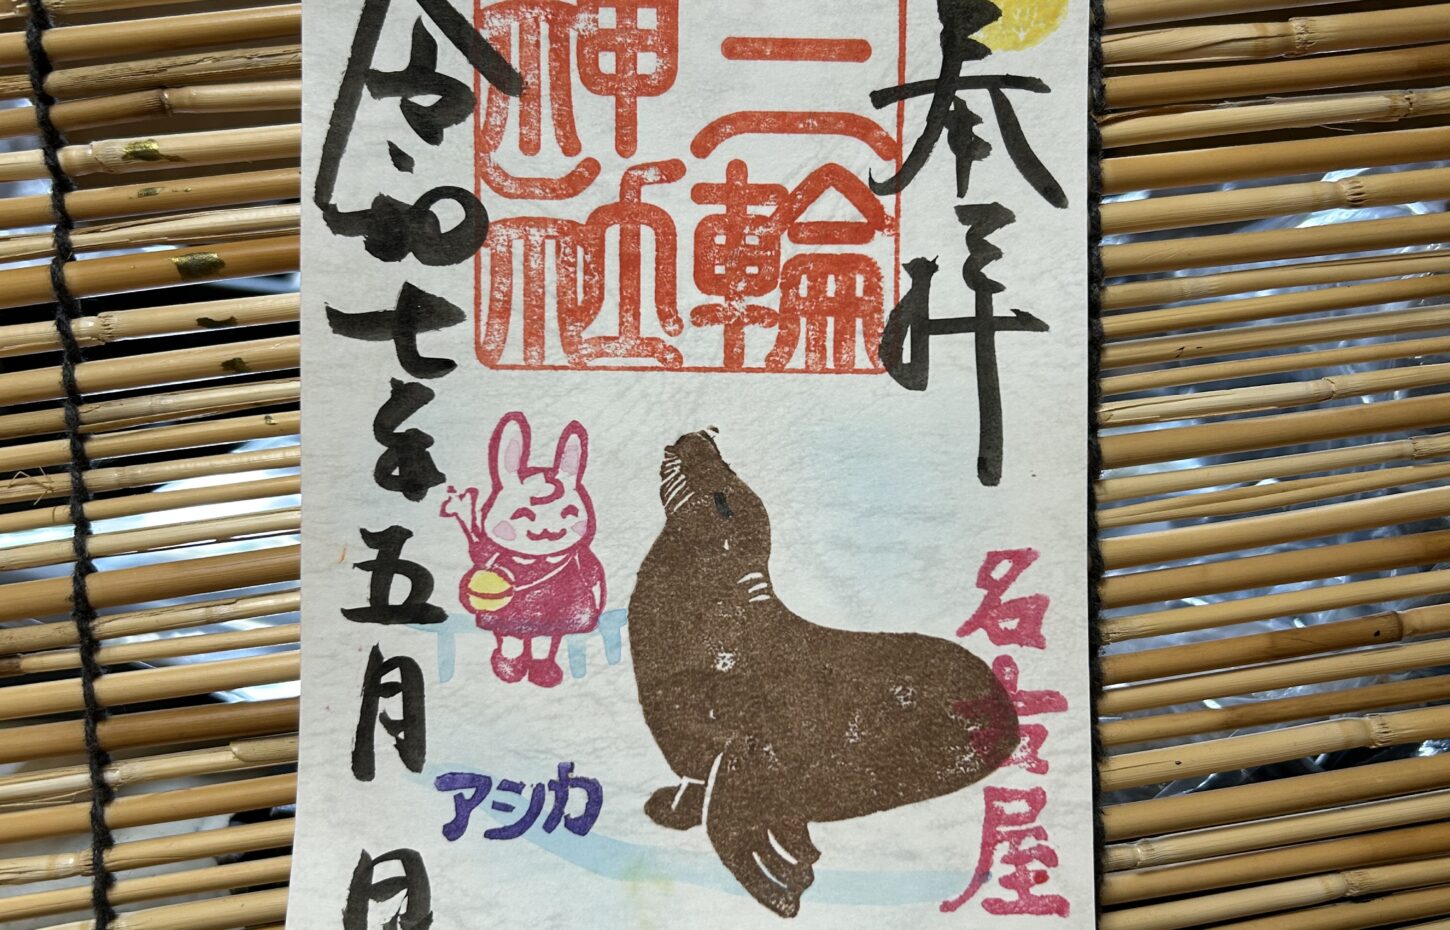 奉拝
名古屋
三輪
神社
アシカ
令和七年五月 日